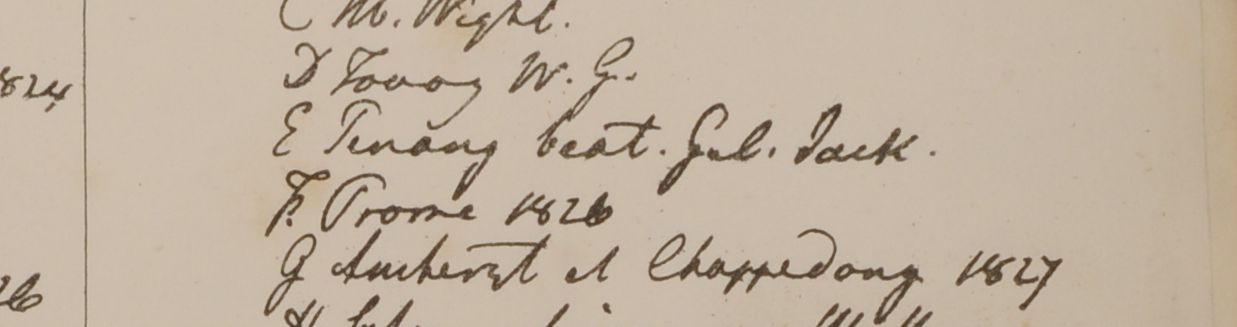 C M. Wight.
D Tavoy W. G.
824
E Penang beat. Gul. Jack.
F. Prome 1826
G Amherst et Chappedong 1827
26
H